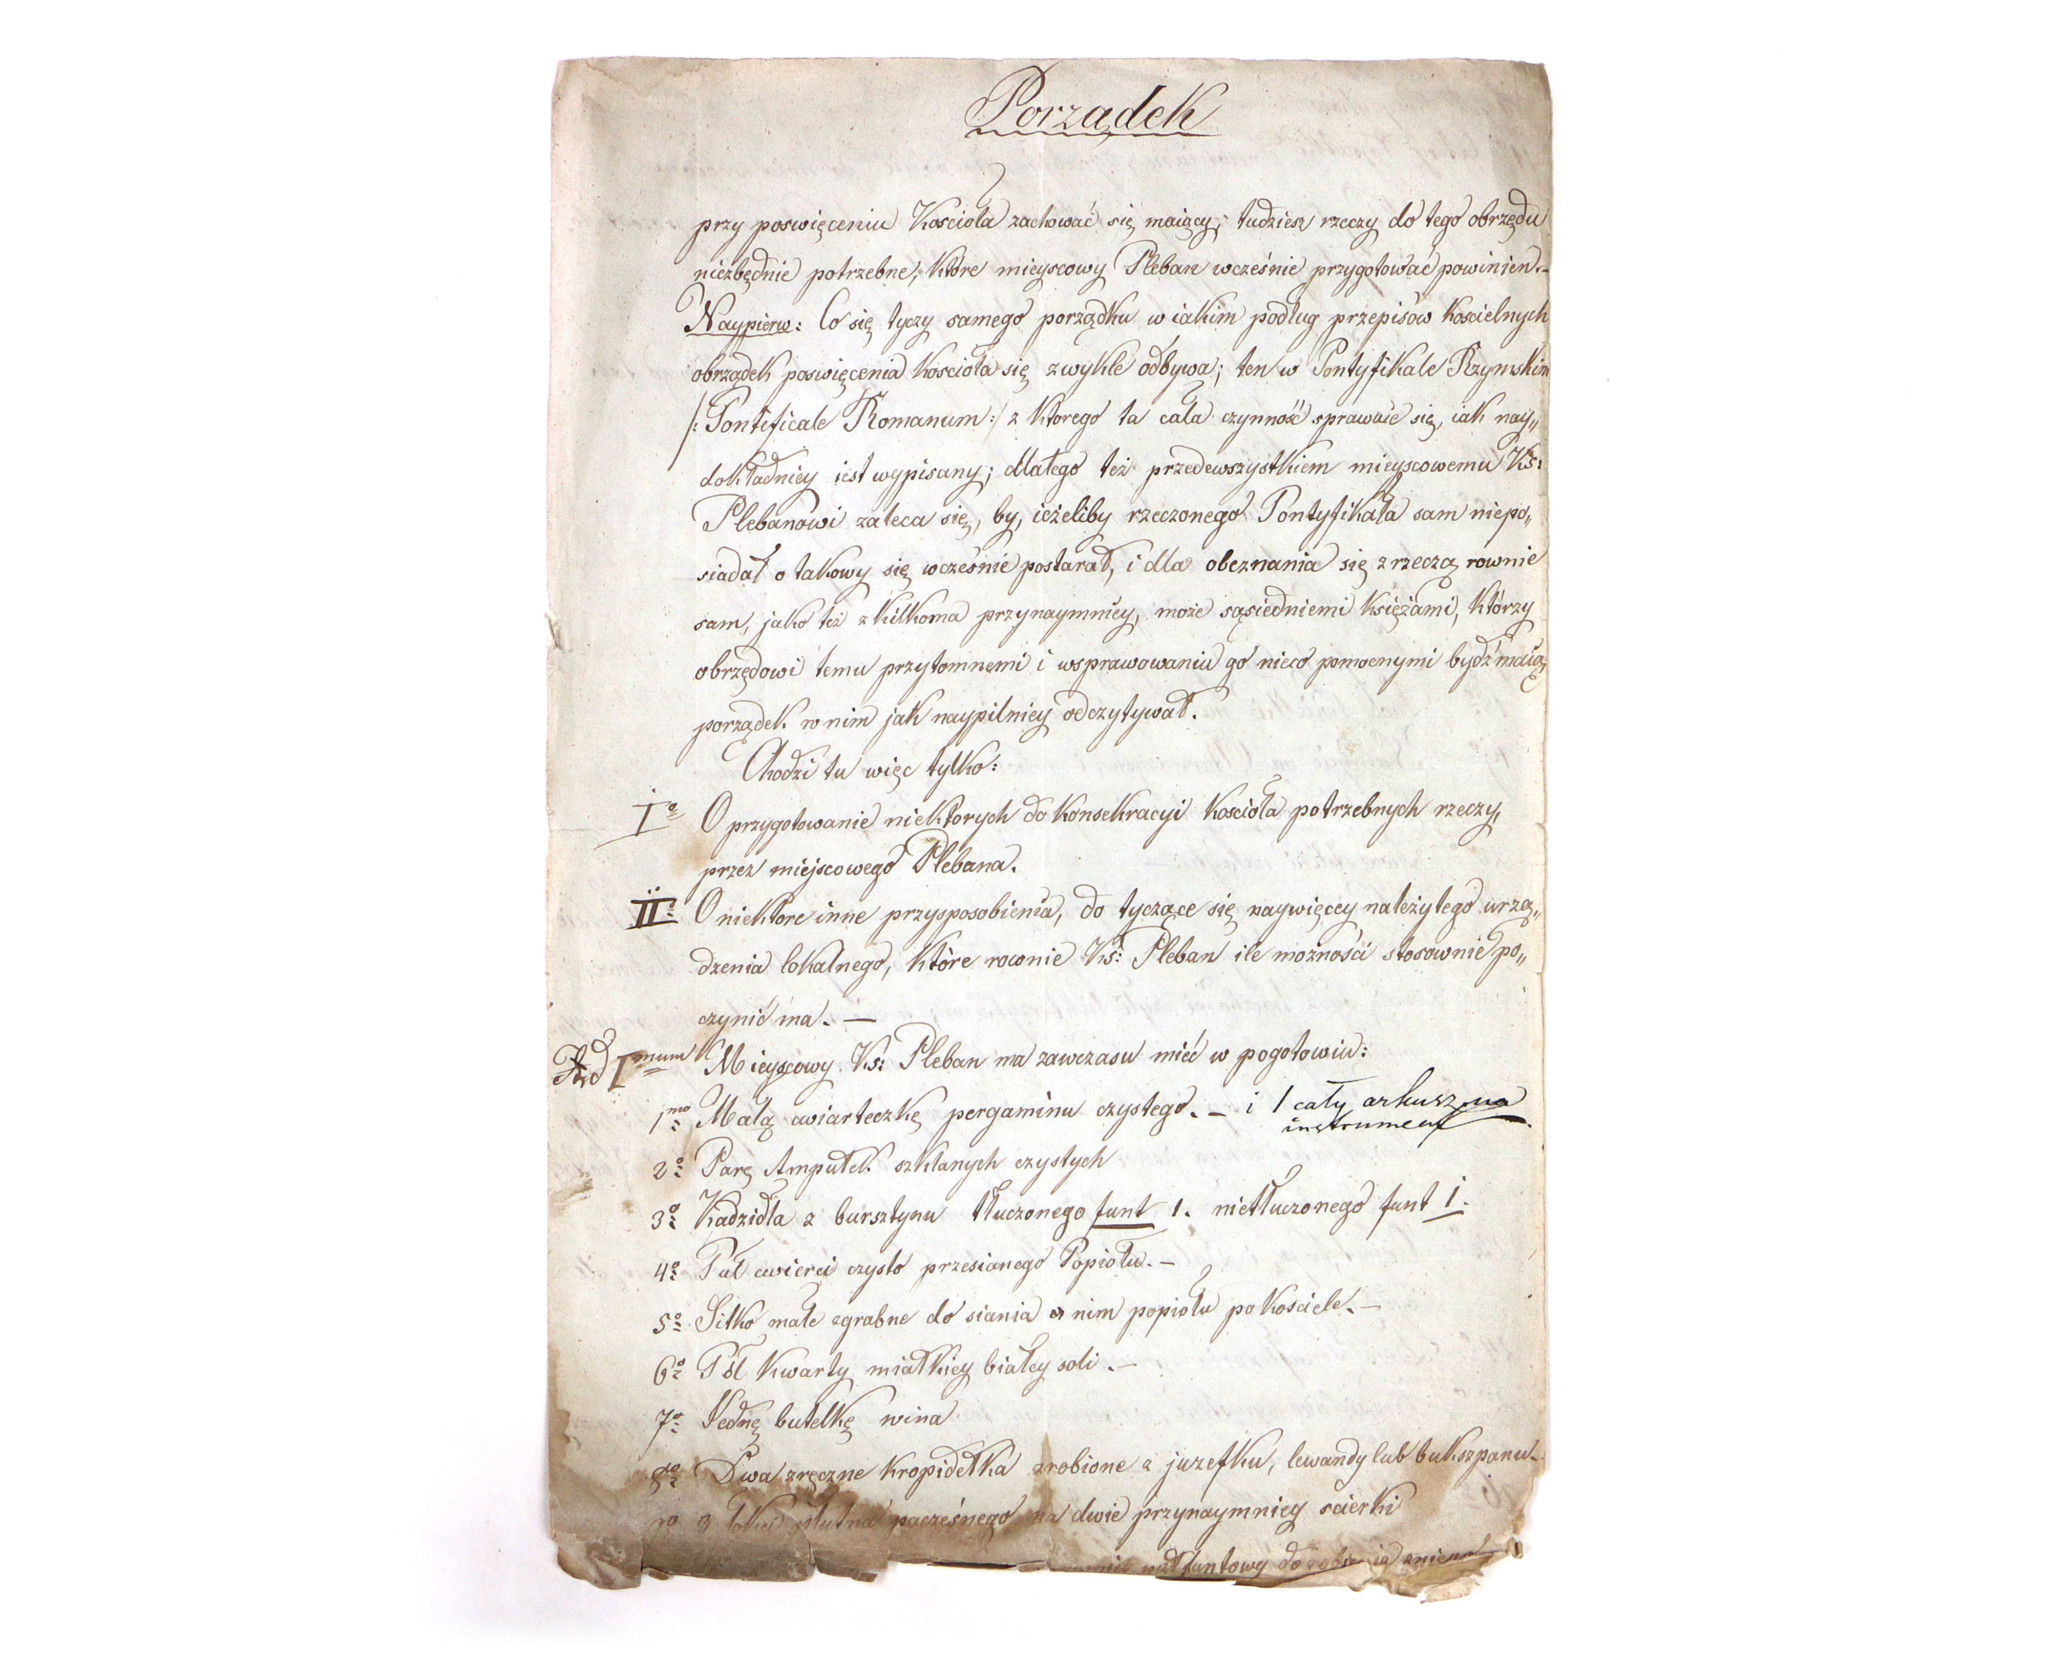 Porządek
przy poswięceniu Kościoła zachować się maiący; tudziesz rzeczy do tego obrzędu
niezbędnie potrzebne, które mieyscowy Pleban wcześnie przygotować powinien.–
Naypierw: Co się tyczy samego porządku w iakim podług przepisów kościelnych
obrządek poswięcenia kościoła się zwykle odbywa; ten w Pontyfikale Rzymskim
/: Pontificale Romanum :/ z ktorego ta cała czynność sprawuie się, iak nay„
dokładniey iest wypisany; dlatego też przedewszystkiem mieyscowemu Ks:
Plebanowi zaleca się, by, ieżeliby rzeczonego Pontyfikała sam niepo„
siadał o takowy się wcześnie postarał, i dla obeznania się z rzeczą rownie
sam, jako też z kilkoma przynaymniey, może sąsiedniemi księżami, którzy
obrzędowi temu przytomnemi i wsprawowaniu go nieco pomocnymi bydź maią
porządek w nim jak naypilniey odczytywał.
Chodzi tu więc tylko:
I° O przygotowanie niektorych do konsekracyi kościoła potrzebnych rzeczy,
przez miejscowego Plebana.
II° O niektore inne przysposobienia, do tyczące się naywięcey należytego urzą„
dzenia lokalnego, które rownie Ks: Pleban ile możności stosownie po„
czynić ma. —
Ad I mum Mieyscowy Ks: Pleban ma zawczasu mieć w pogotowiu:
1mo Małą cwiarteczkę pergaminu czystego. – i 1 cały arkusz na
instrument.
2° Parę Ampułek szklanych czystych
3° Kadzidła z bursztynu tłuczonego funt 1. nietłuczonego funt 1.
4° Puł cwierci czysto przesianego Popiołu. –
5° Sitko małe zgrabne do siania nim popiołu po kosciele. –
6° Pół kwarty miałkiey białey soli. –
7° Jednę butelkę wina
8° Dwa zręczne kropidełka zrobione z juzefku, lewandy lub bukszpanu.
3 łokci płutna paczesnego na dwie przynaymniey scierki
funtowy do